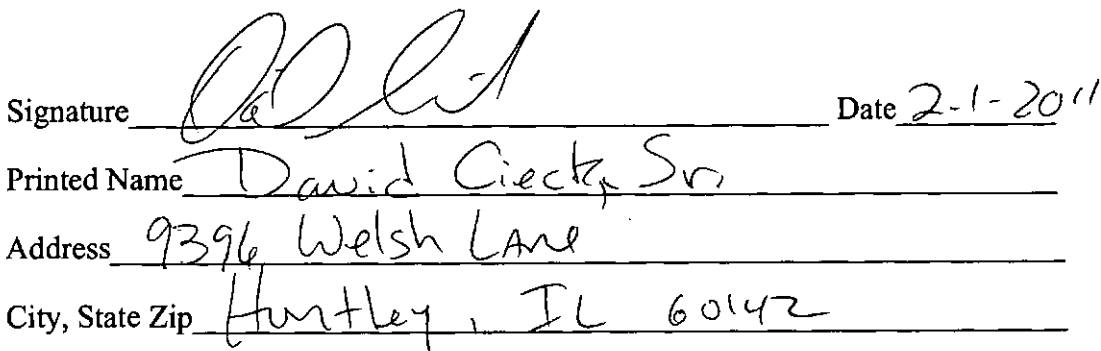 Signature Date 2-1-2011
Printed Name David Cieck, Sr.
Address 9396 Welsh Lane
City, State Zip Huntley, IL 60142